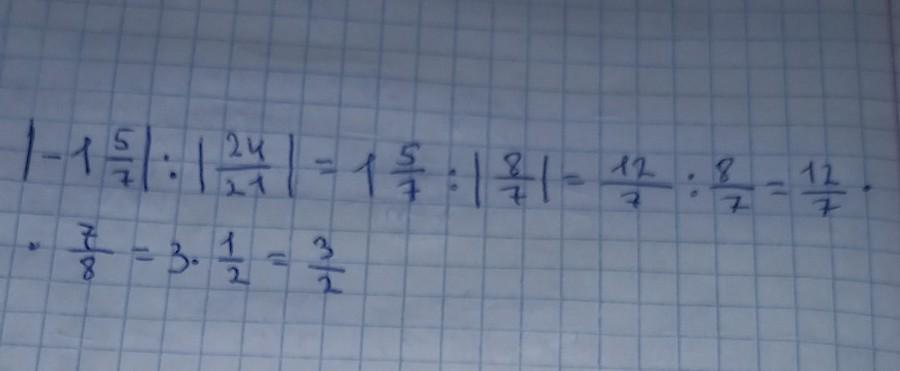 |-1 5/7| : |24/21| = 1 5/7 : |8/7| = 12/7 : 8/7 = 12/7 ·
· 7/8 = 3 · 1/2 = 3/2